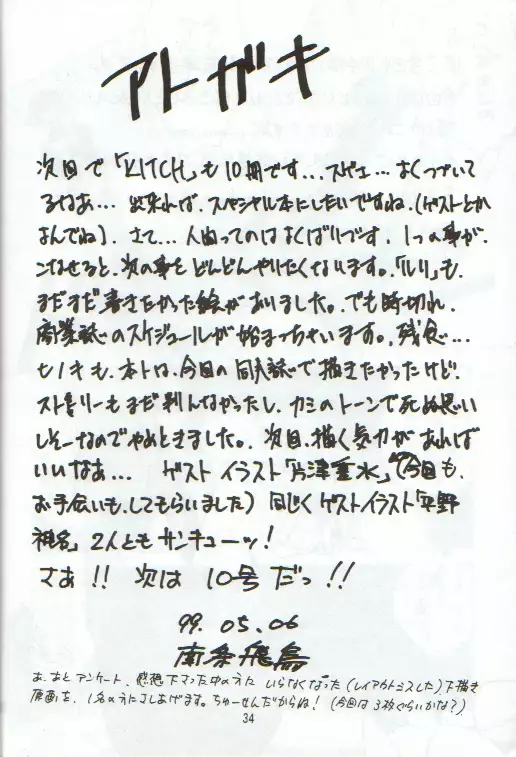 アトガキ
次回で「KITCH」も10冊です…スゲェ…よくつづいて
るなあ…出来れば、スペシャル本にしたいですね。(ゲストとか
よんでね)。さて…人間ってのはよくばりです。1つの事が
こなせると、次の事をどんどんやりたくなります。「ルリ」も、
まだまだ書きたかった絵がありました。でも時切れ、
商業誌のスケジュールが始まっちゃいます。残念…
ヒノキも、本トは、今回の同人誌で描きたかったけど!
ストーリーもまだ判んなかったし、カミのトーンで死ぬ思い
しそーなのでやめときました。次回、描く気力があれば
いいなあ… ゲストイラスト「片津重水」(今回も、
お手伝いも、してもらいました)同じくゲストイラスト「平野
雅名」2人ともサンキューッ!
さあ!! 次は10号だっ!!
99.05.06
南条飛鳥
あ、あとアンケート、感想下さった中の方に いらなくなった(レイアウトミスした)下描き
原画を、1名の方にさしあげます。ちゅーせんだからね!(今回は3枚ぐらいかな?)
34